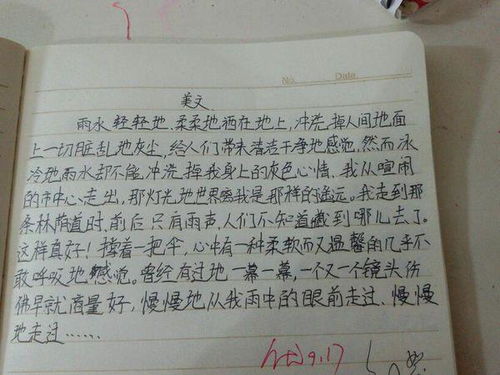 No.  Date
美文
雨水轻轻地、柔柔地洒在地上，冲洗掉人间地面
上一切脏乱地灰尘，给人们带来洁干净地感觉，然而冰
冷地雨水却不能冲洗掉我身上的灰色心情，我从喧闹
的市中心走出，那灯光地世界离我是那样的遥远。我走到那
条林荫道时，前后只有雨声，人们不知道藏到哪儿去了。
这样真好！撑着一把伞，心中有一种柔软而又温馨的几乎不
敢呼吸地感觉。曾经有过地一幕一幕，一个又一个镜头仿
佛早就商量好，慢慢地从我雨中的眼前走过、慢慢
地走过……
9.17